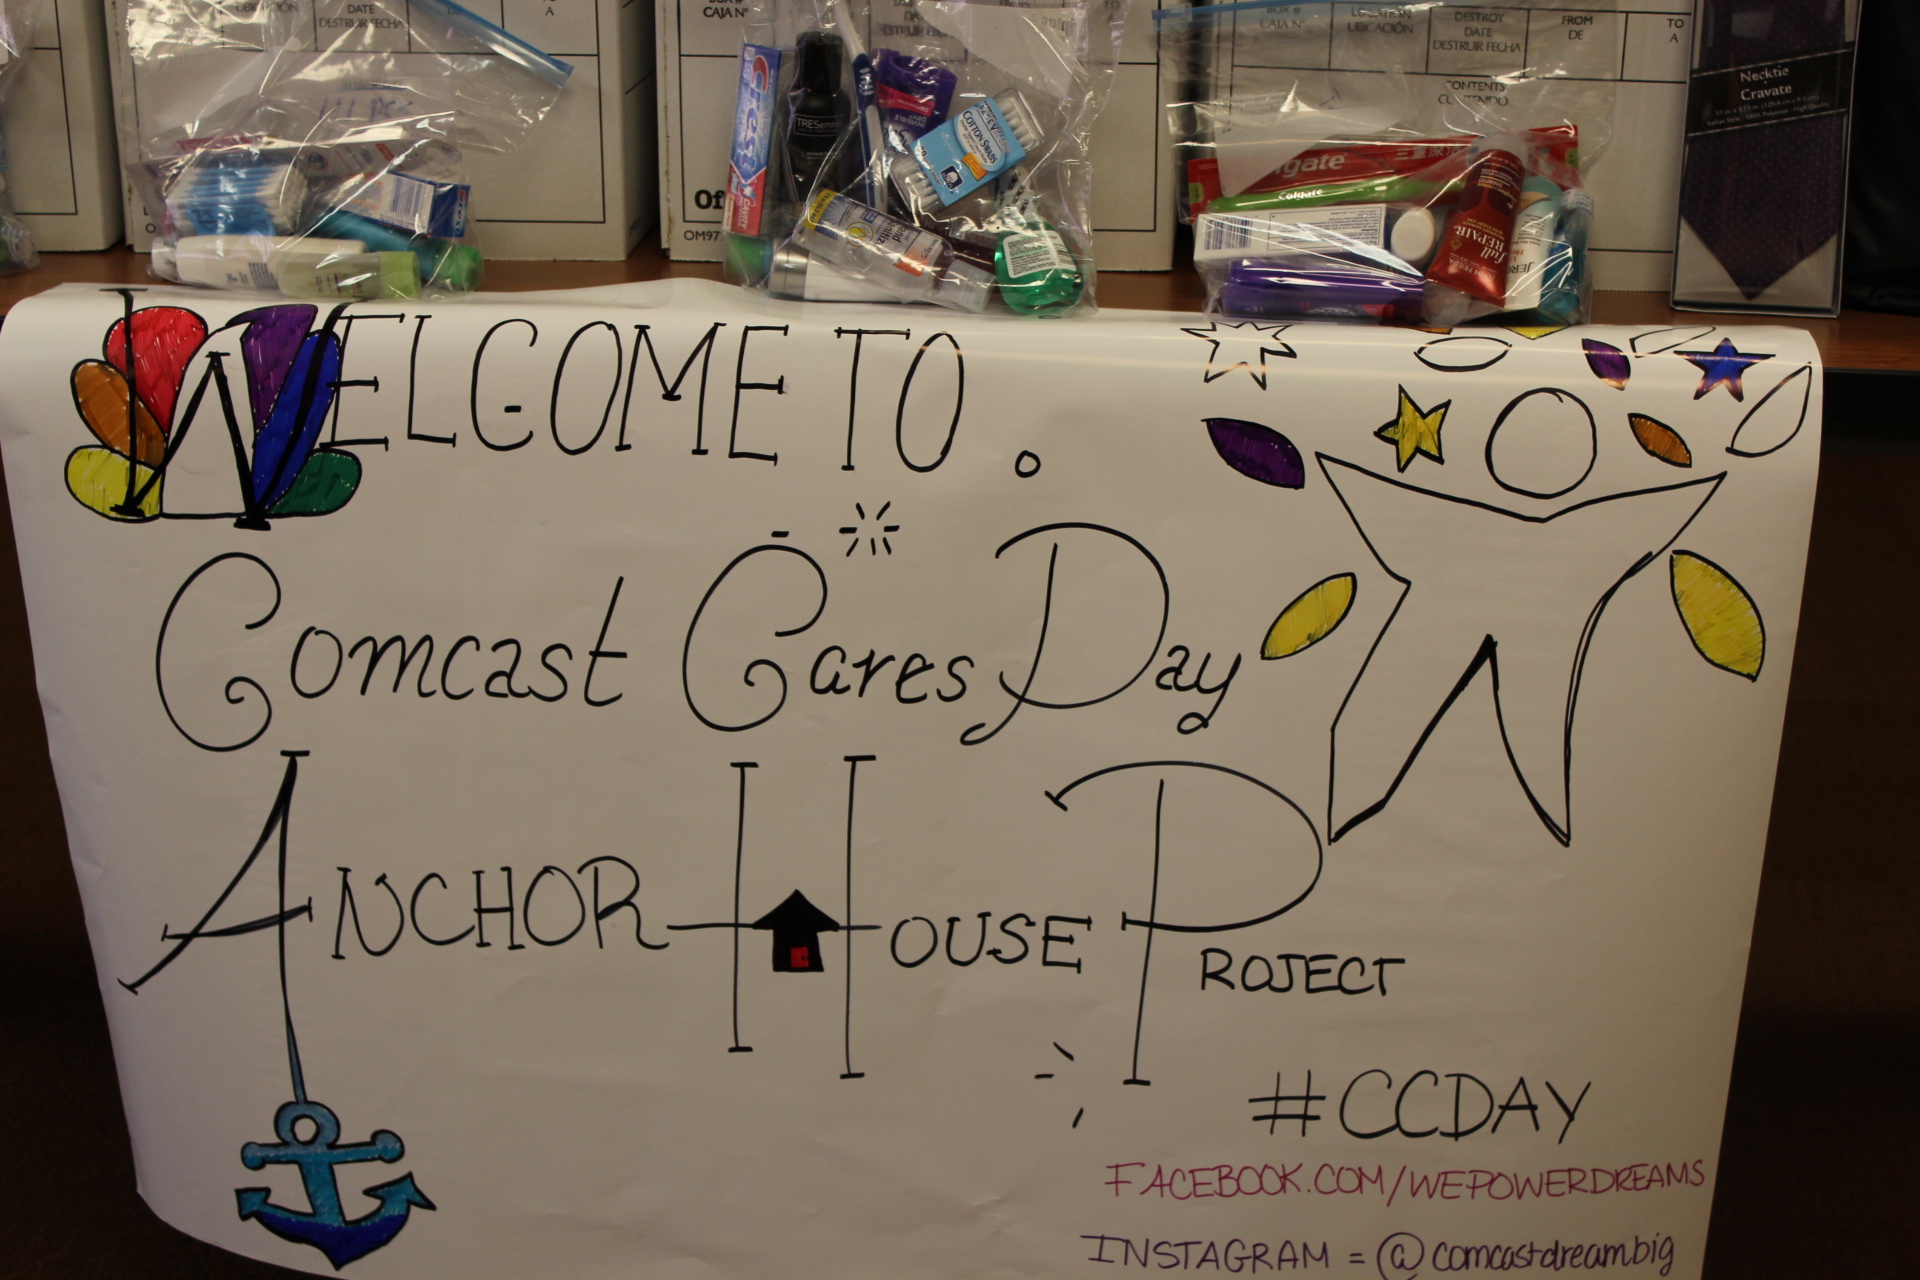 UBICACIÓN
DATE
DESTRUIR FECHA
TO
A
CAJA Nº
BOX #
CAJA Nº
LOCATION
UBICACIÓN
DESTROY
DATE
DESTRUIR FECHA
FROM
DE
TO
A
CONTENTS
CONTENIDO
Necktie
Cravate
Crest
CAVITY
TRESemmé
COTTON SWABS
Colgate
Colgate
full
REPAIR
JER
Of
OM97
WELCOME TO.
Comcast Cares Day
ANCHOR HOUSE PROJECT
#CCDAY
FACEBOOK.COM/WEPOWERDREAMS
INSTAGRAM = @comcastdreambig